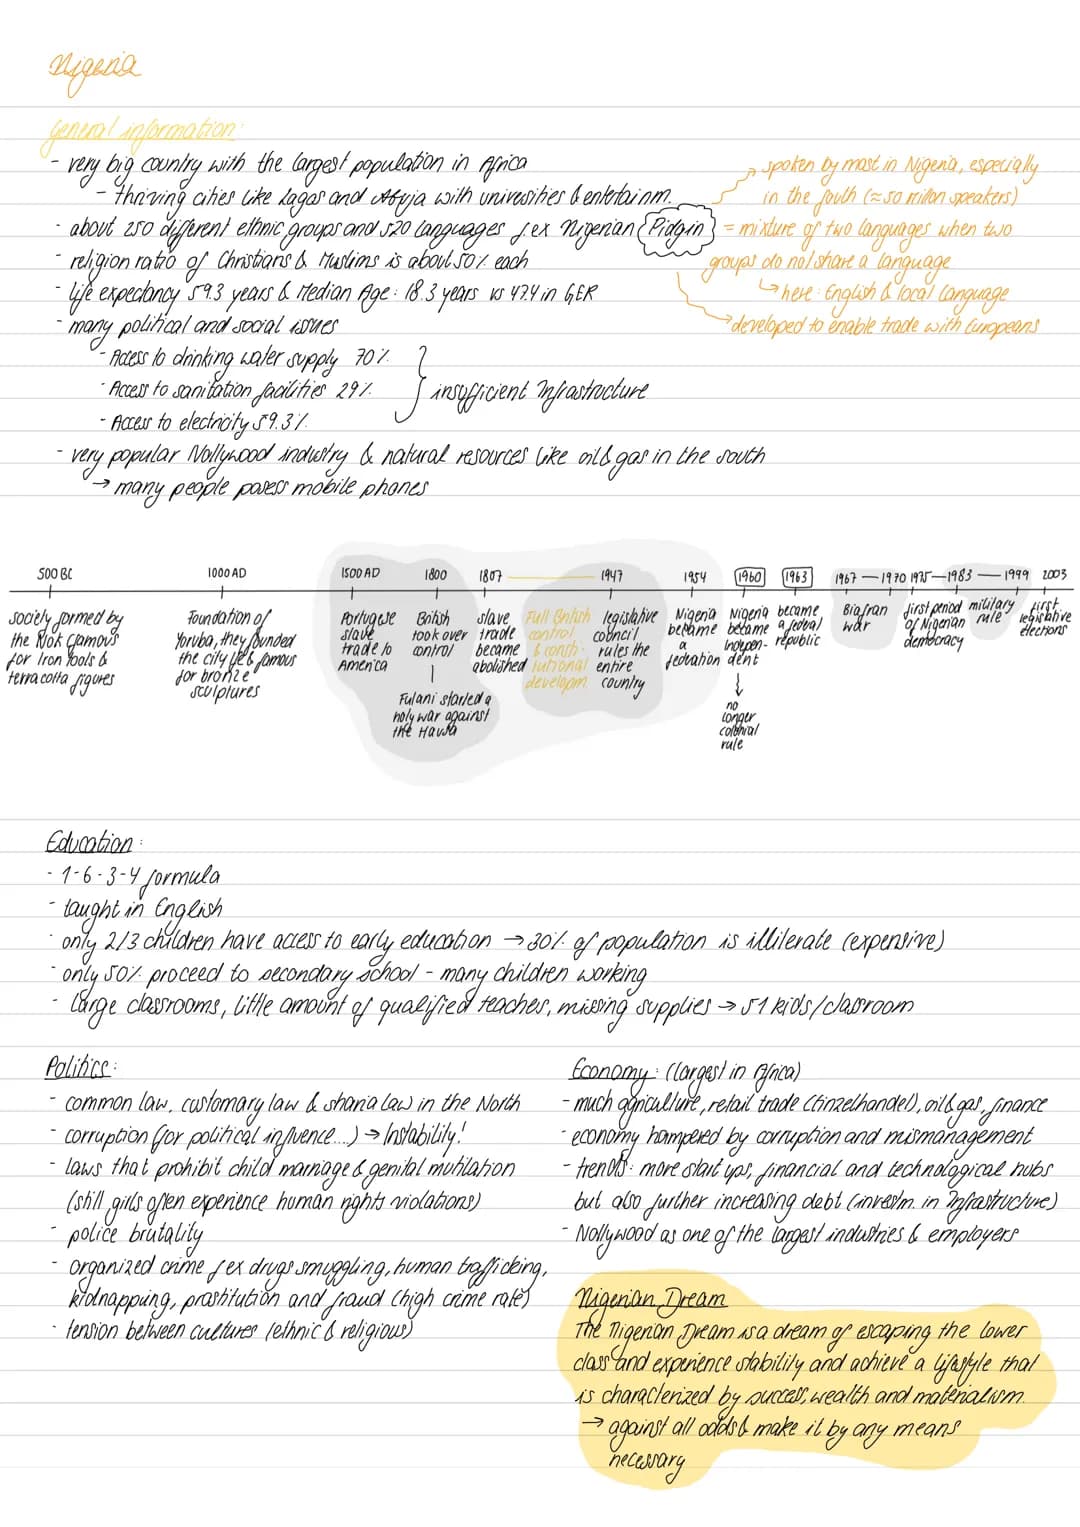 Nigeria
General information:
- very big country with the largest population in Africa
- thriving cities like Lagos and Abuja with universities & entertainm.
- about 250 different ethnic groups and 520 languages f.ex Nigerian Pidgin
- religion ratio of Christians & Muslims is about 50% each
- life expectancy 59.3 years & Median Age: 18.3 years vs 47.4 in GER
- many political and social issues
- Access to drinking water supply 70%
- Access to sanitation facilities 29%
- Access to electricity 59.3%
insufficient Infrastructure
- very popular Nollywood industry & natural resources like oil & gas in the south
→ many people posess mobile phones
spoken by most in Nigeria, especially
in the South (≈ 50 millon speakers)
= mixture of two languages when two
groups do not share a language
↳ here: English & local language
developed to enable trade with Europeans
500 BC
society formed by
the Nok (famous
for Iron Tools &
terracotta figures
1000 AD
Foundation of
Yoruba, they founded
the city Ife & famous
for bronze
sculptures
1500 AD
Portugese
slave
trade to
America
1800
British
took over
control
Fulani started a
holy war against
the Hausa
1807
slave
trade
became
abolished
Full British
control
& consti-
tutional
developm.
1947
legislative
council
rules the
entire
country
1954
Nigeria
became
a
federation
1960
Nigeria
became
indepen-
dent
↓
no
longer
colonial
rule
1963
became
a federal
republic
1967 — 1970
Biafran
war
1975 — 1983
first period
of Nigerian
democracy
— 1999
military
rule
2003
first
legislative
elections
Education:
- 1-6-3-4 formula
- taught in English
- only 2/3 children have access to early education → 30% of population is illiterate (expensive)
- only 50% proceed to secondary school - many children working
- Large classrooms, little amount of qualified teaches, missing supplies → 51 kids/classroom
Politics:
- common law, customary law & sharia law in the North
- corruption (for political influence...) → Instability!
- laws that prohibit child marriage & genital mutilation
(still girls often experience human rights violations)
- police brutality
- organized crime f.ex drugs smuggling, human trafficking,
kidnapping, prostitution and fraud (high crime rate)
- tension between cultures (ethnic & religious)
Economy: (largest in Africa)
- much agriculture, retail trade (Einzelhandel), oil & gas, finance
- economy hampered by corruption and mismanagement
- trends: more start ups, financial and technological hubs
but also further increasing debt (investm. in Infrastructure)
- Nollywood as one of the largest industries & employers
Nigerian Dream
The Nigerian Dream is a dream of escaping the lower
class and experience stability and achieve a lifestyle that
is characterized by success, wealth and materialism.
→ against all odds & make it by any means
necessary